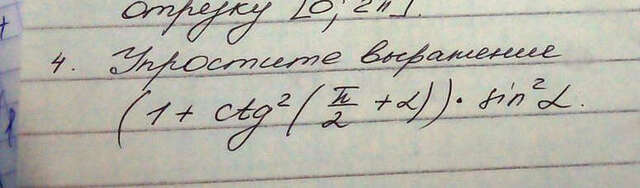 отрезку [0; 2π].
4. Упростите выражение
(1 + ctg² (π/2 + α)) · sin² α.